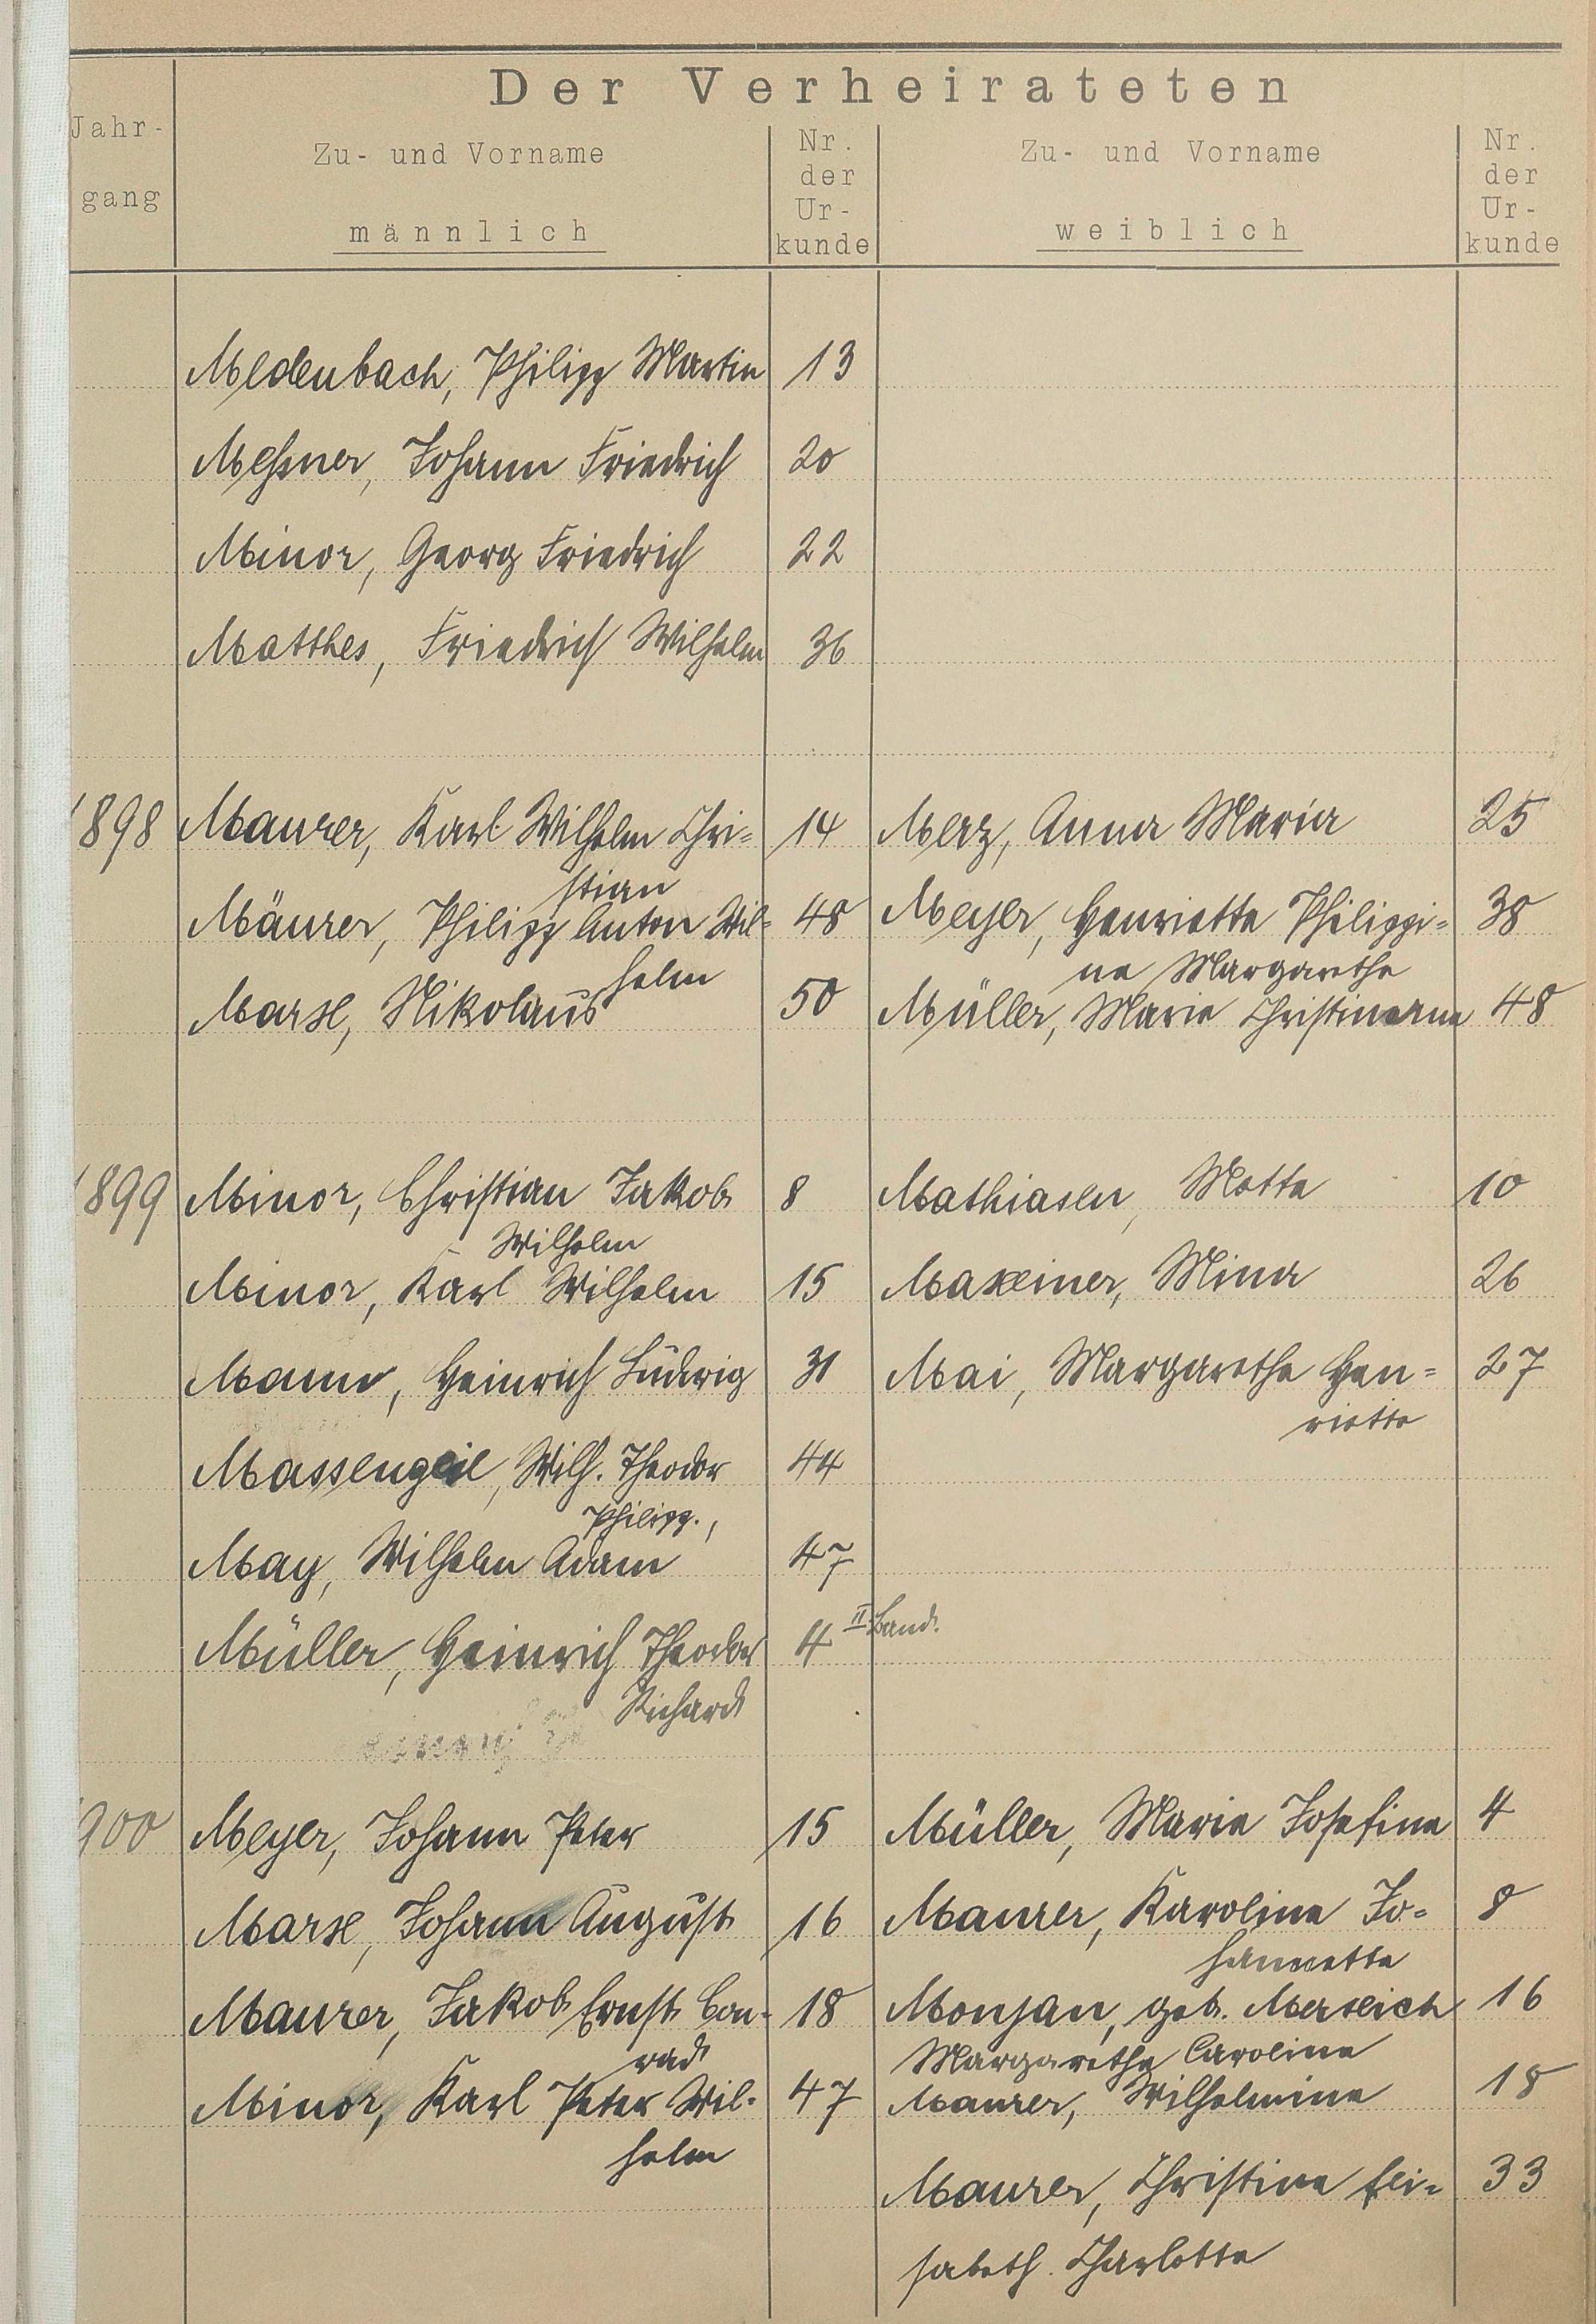 Der Verheirateten
Jahr-
gang
Zu- und Vorname
männlich
Nr.
der
Ur-
kunde
Zu- und Vorname
weiblich
Nr.
der
Ur-
kunde
Medenbach, Philipp Martin 13
Meßner, Johann Friedrich 20
Minor, Georg Friedrich 22
Matthes, Friedrich Wilhelm 36
1898 Maurer, Karl Wilhelm Chri= 14 Merz, Anna Maria 25
stian
Mäurer, Philipp Anton Wil= 48 Meyer, Henriette Philippi= 38
helm ne Margarethe
Marx, Nikolaus 50 Müller, Marie Christine 48
1899 Minor, Christian Jakob 8 Mathiasen, Metta 10
Wilhelm
Minor, Karl Wilhelm 15 Maxeiner, Mina 26
Mann, Heinrich Ludwig 31 Mai, Margarethe Hen= 27
riette
Massengeil, Wilh. Theodor 44
Philipp.,
May, Wilhelm Adam 47
Müller, Heinrich Theodor 4 II Band.
Richard
1900 Meyer, Johann Peter 15 Müller, Marie Josefine 4
Marx, Johann August 16 Maurer, Karoline Jo= 8
hannette
Maurer, Jakob Ernst Con= 18 Monjan, geb. 16
rad Margarethe Caroline
Minor, Karl Peter Wil= 47 Maurer, Wilhelmine 18
helm
Maurer, Christine Eli= 33
sabeth Charlotte